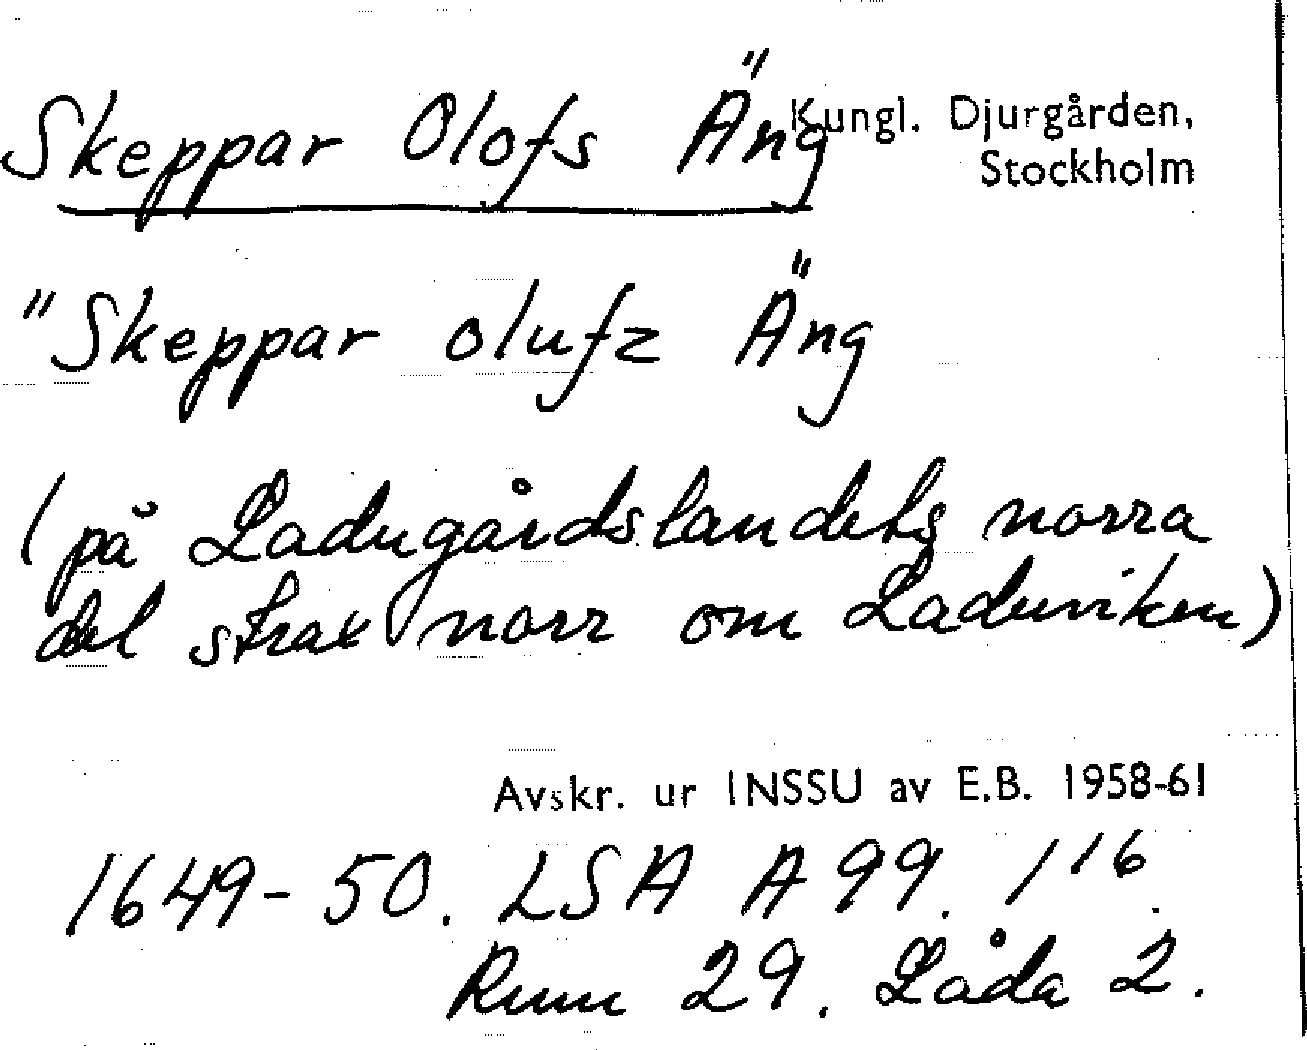 Skeppar Olofs Äng
Kungl. Djurgården,
Stockholm
"Skeppar olufz Äng
(på Ladugårdslandets norra
del strax norr om Laduviken)
Avskr. ur INSSU av E.B. 1958-61
1649-50. LSA A 99. 1 16.
Rum 29. Låda 2.